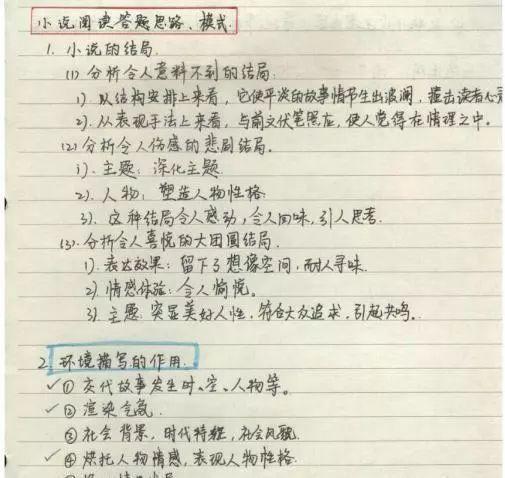 小说阅读答题思路、模式.
1. 小说的结局.
(1) 分析令人意料不到的结局.
1). 从结构安排上来看，它使平淡的故事情节生出波澜，撞击读者心
2). 从表现手法上来看，与前文伏笔照应，使人觉得在情理之中。
(2) 分析令人伤感的悲剧结局。
1). 主题：深化主题.
2). 人物：塑造人物性格.
3). 这种结局令人感动，令人回味，引人思考.
(3). 分析令人喜悦的大团圆结局.
1). 表达效果：留下了想像空间，耐人寻味.
2). 情感体验：令人愉悦。
3). 主题：突显美好人性，符合大众追求，引起共鸣.
2. 环境描写的作用.
✓① 交代故事发生时、空、人物等。
✓② 渲染气氛.
③ 社会背景，时代特征，社会风貌.
✓④ 烘托人物情感，表现人物性格.